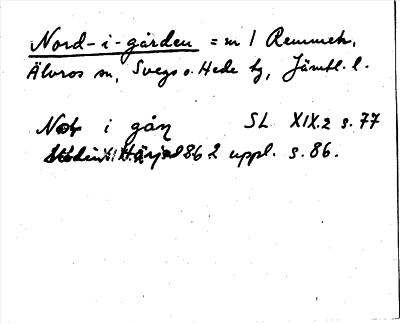 Nord-i-gården = m 1 Remmen,
Älvros sn, Svegs o. Hede tg, Jämtl. l.
i gån SL XIX.2 s. 77
2 uppl. s. 86.